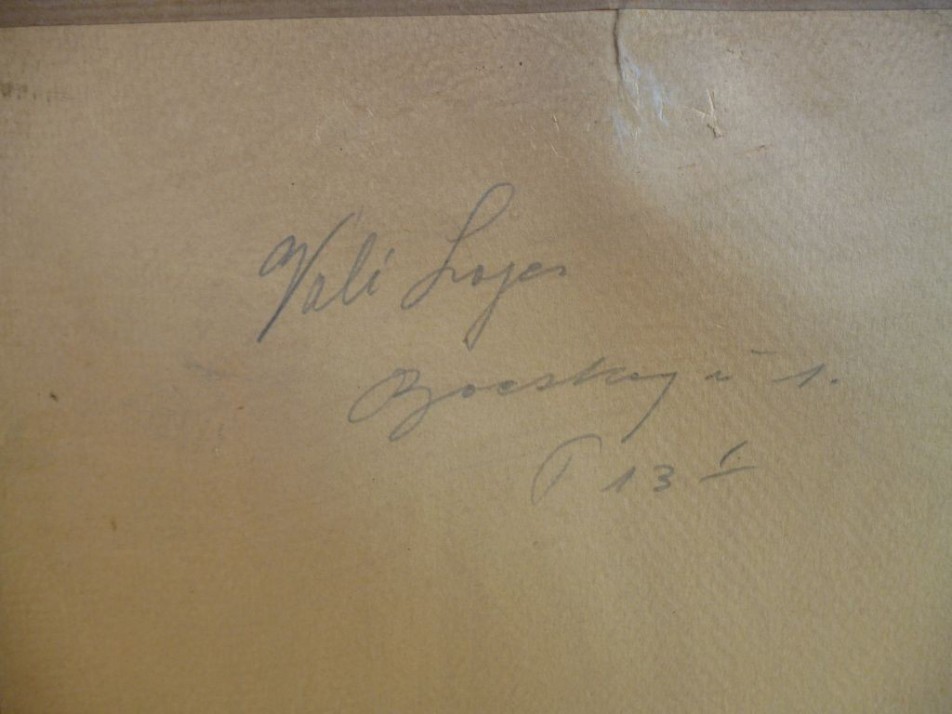 Vali Lajos
Bocskay u 1.
P 13